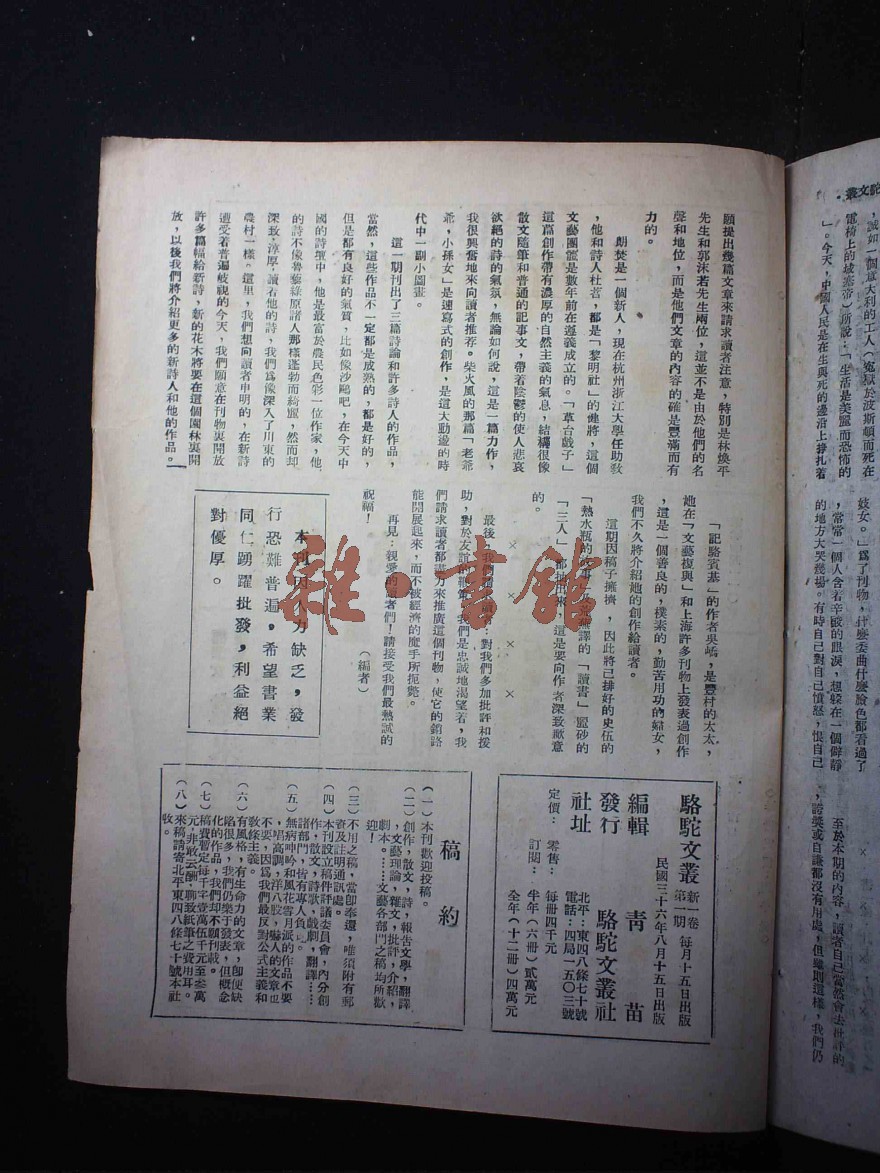 駝文叢・
，誠如一個意大利的工人（冤獄於波斯頓而死在
電椅上的域塞帝）所說：「生活是美麗而恐怖的
」。今天，中國人民是在生與死的邊沿上掙扎着
妓女。」爲了刊物，什麼委曲什麼臉色都看過了
，常常一個人含着辛酸的眼淚，想躲在一個僻靜
的地方大哭幾場。有時自己對自己憤怒，恨自己
至於本期的內容，讀者自己當然會去批評的
，誇獎或自謙都沒有用處，但雖則這樣，我們仍
願提出幾篇文章來請求讀者注意，特別是林煥平
先生和郭沫若先生兩位，這並不是由於他們的名
聲和地位，而是他們文章的內容的確是豐滿而有
力的。
朗焚是一個新人，現在杭州浙江大學任助教
，他和詩人杜苕，都是「黎明社」的健將，這個
文藝團體是數年前在遵義成立的。「草台戲子」
這篇創作帶有濃厚的自然主義的氣息，結構很像
散文隨筆和普通的記事文，帶着陰鬱的使人悲哀
欲絕的詩的氣氛，無論如何說，這是一篇力作，
我很興奮地來向讀者推荐。柴火風的那篇「老爺
爺，小孫女」是速寫式的創作，是這大動盪的時
代中一副小圖畫。
這一期刊出了三篇詩論和許多詩人的作品，
當然，這些作品不一定都是成熟的，都是好的，
但是都有良好的氣質，比如像沙鷗吧，在今天中
國的詩壇中，他是最富於農民色彩一位作家，他
的詩不像魯藜綠原諸人那樣蓬勃而綺麗，然而却
深致，淳厚，讀着他的詩，我們爲像深入了川東的
農村一樣。這里，我們想向讀者申明的，在新詩
遭受着普遍歧視的今天，我們願意在刊物裏開放
許多篇幅給新詩，新的花木將要在這個園林裏開
放，以後我們將介紹更多的新詩人和他的作品。
「記駱賓基」的作者吳嶠，是豐村的太太，
她在「文藝復興」和上海許多刊物上發表過創作
，這是一個善良的，樸素的，勤苦用功的婦女，
我們不久將介紹她的創作給讀者。
這期因稿子擁擠，因此將已排好的史伍的
「熱水瓶的故事」譯的「讀書」盬砂的
「三人」都抽出來，這是要向作者深致歉意
的。
×　×　×　×
最後，我們讀者：對我們多加批評和援
助，對於友誼的鞭策，我們是忠誠地渴望着，我
們請求讀者都盡力來推廣這個刊物，使它的銷路
能開展起來，而不被經濟的魔手所扼斃。
再見，親愛的讀者們！請接受我們最熱誠的
祝福！
（編者）
本刊因人力缺乏，發
行恐難普遍，希望書業
同仁踴躍批發，利益絕
對優厚。
駱駝文叢　新一卷　第一期　每月十五日出版
民國三十六年八月十五日出版
編輯　青苗
發行　駱駝文叢社
社址　北平：東四八條七十號
電話：四局一五〇三號
定價：零售：每冊四千元
訂閱：半年（六冊）貳萬元
全年（十二冊）四萬元
稿約
（一）本刊歡迎投稿。
（二）創作，散文，詩，報告文學，翻譯
，文藝理論，雜文，批評，介紹，
劇本。……文藝各部門之稿均所歡
迎！
（三）不用之稿，當卽奉還，唯須附有郵
資及註明通訊處。
（四）本刊設立稿件評議委員會，內分創
作，散文，詩歌，戲劇，翻譯……
諸部門，皆有專人負責。
（五）無病呻吟和風花雪月派的作品不要
，唱高調，洋八股，嚇人的文章也
不要，因爲我們最反對公式主義和
敎條主義。
（六）有風格，有生命力的文章，卽使缺
陷很多，我們仍樂于發表，但概念
化的作品，我們却不願刊載。
（七）稿費暫定每千字壹萬伍千元至叁萬
元，非敢云酬，聊致紙筆之費用耳。
（八）來稿請寄北平東四八條七十號本社
收。
雜・書館